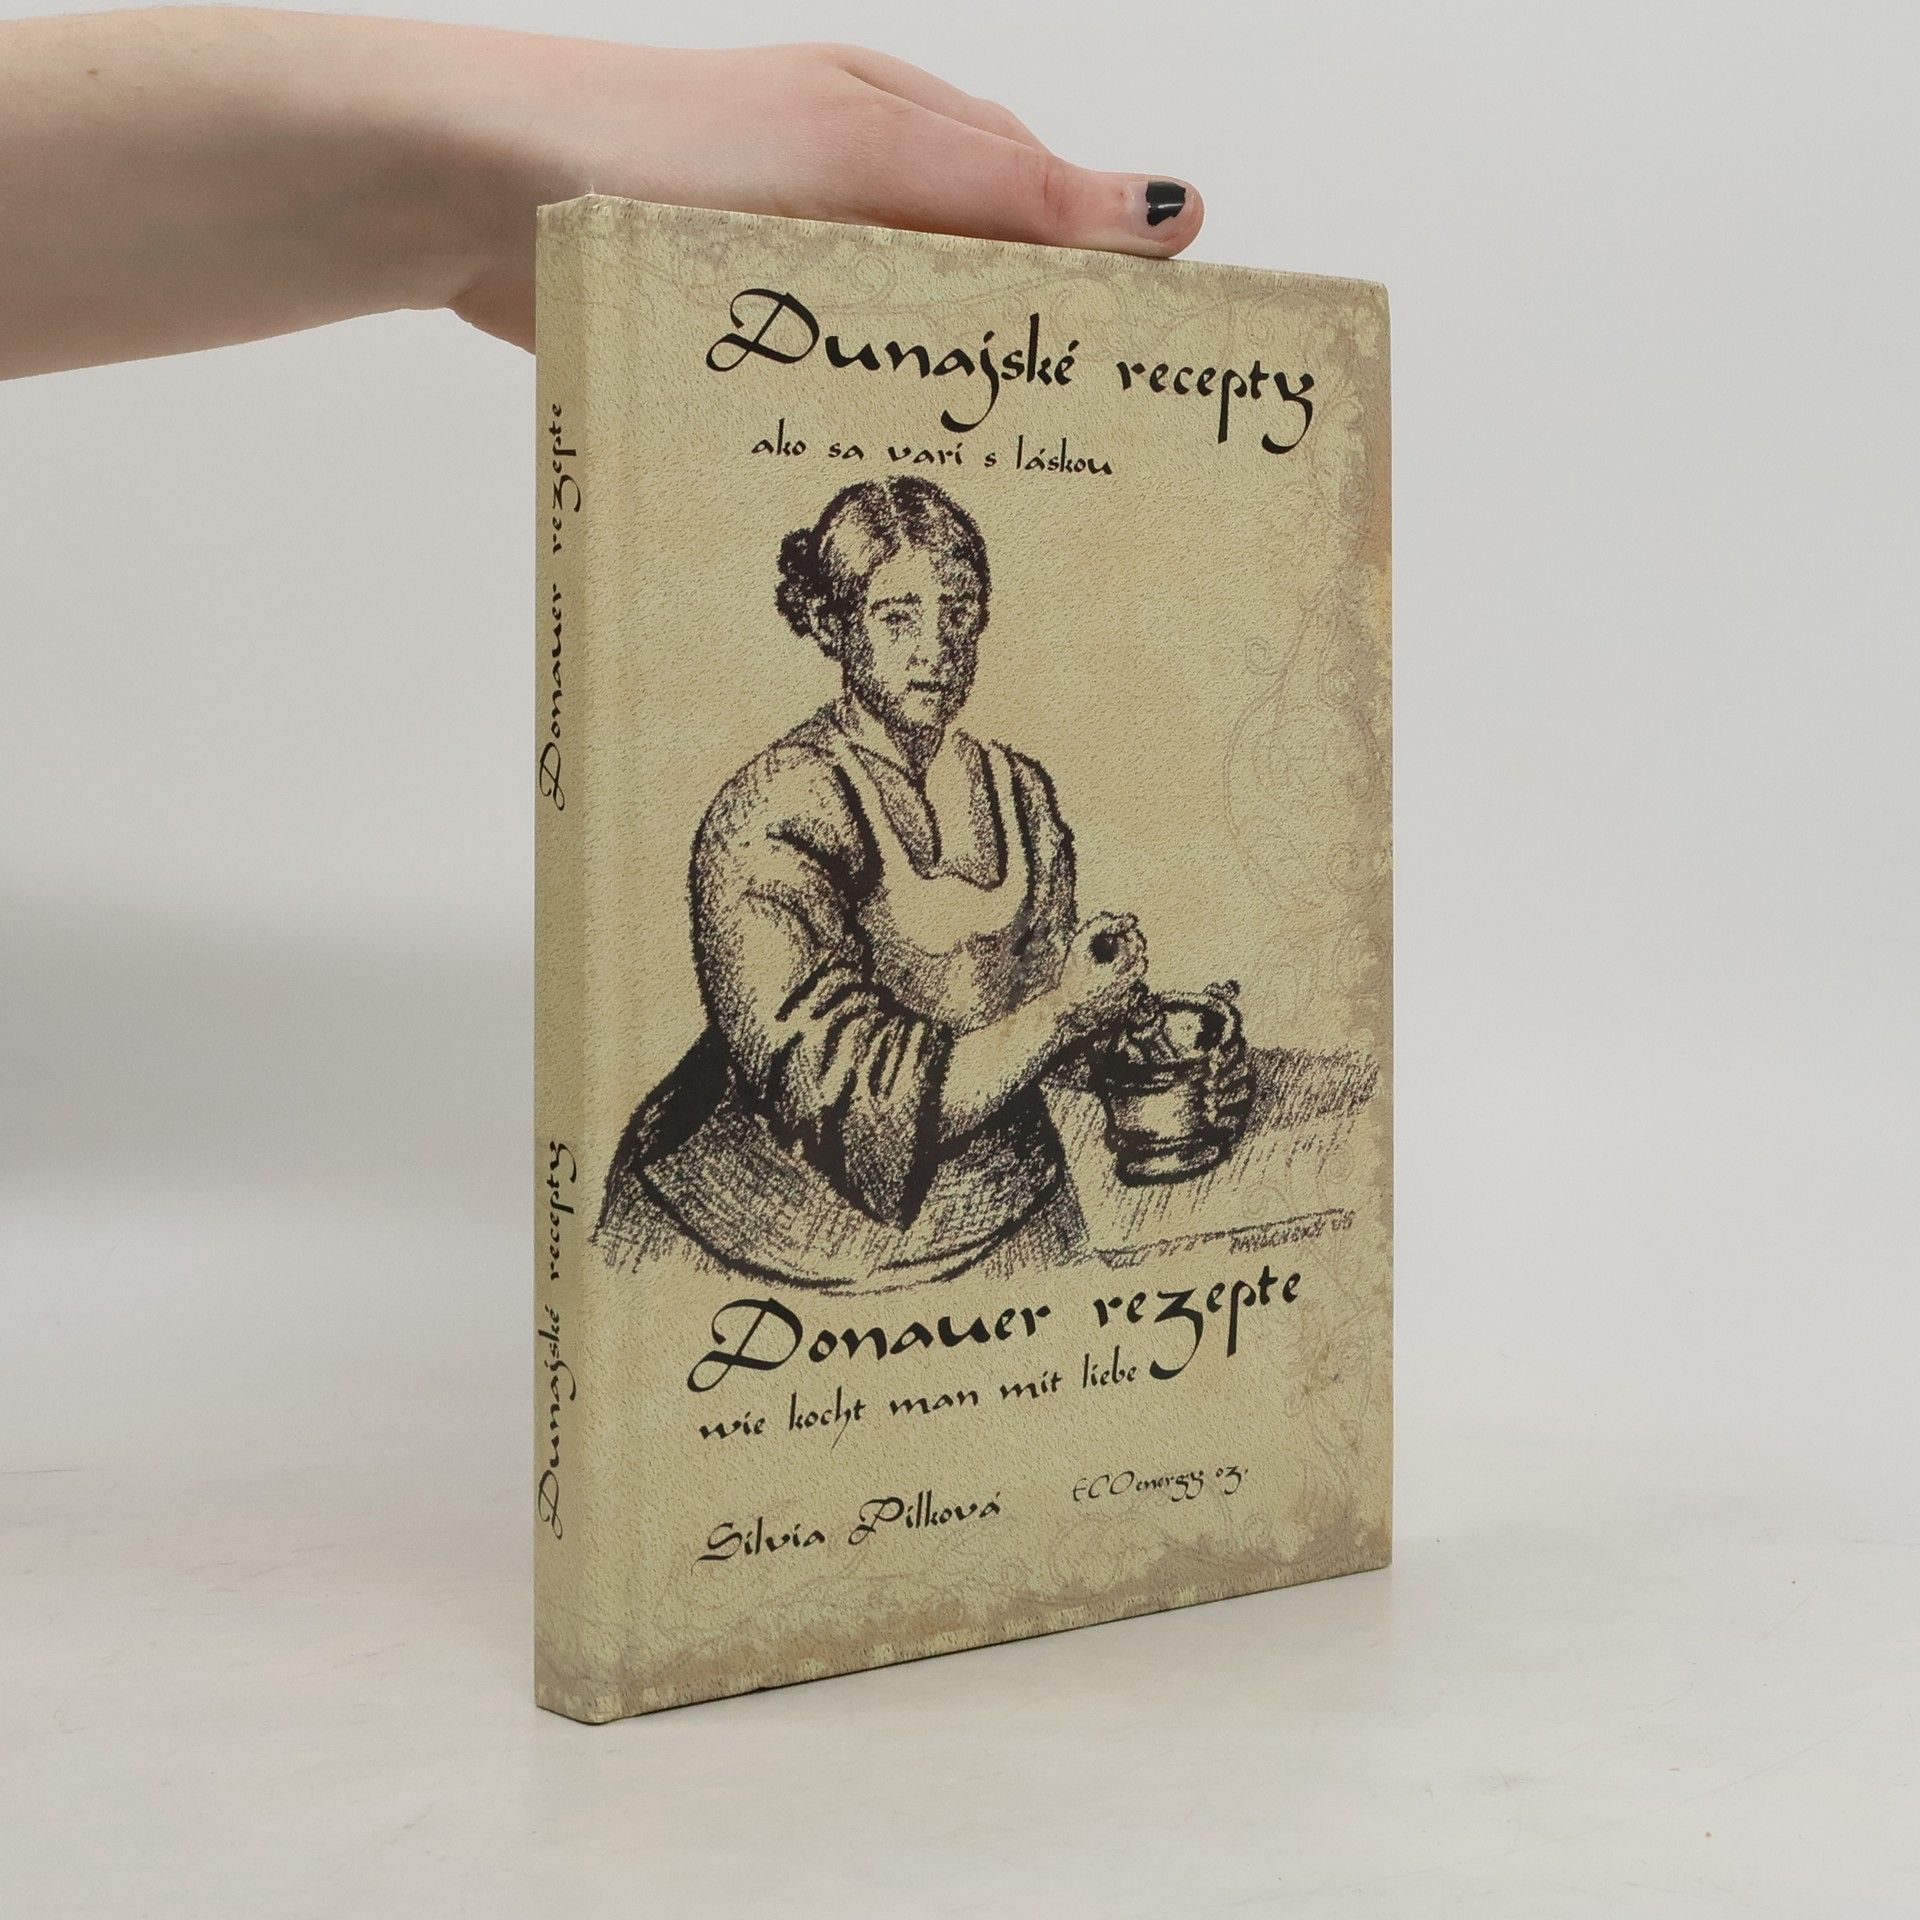 Dunajské recepty
ako sa varí s láskou
Donauer rezepte
wie kocht man mit liebe
Silvia Pilková
ECOenergy oz.
Dunajské recepty
Donauer rezepte